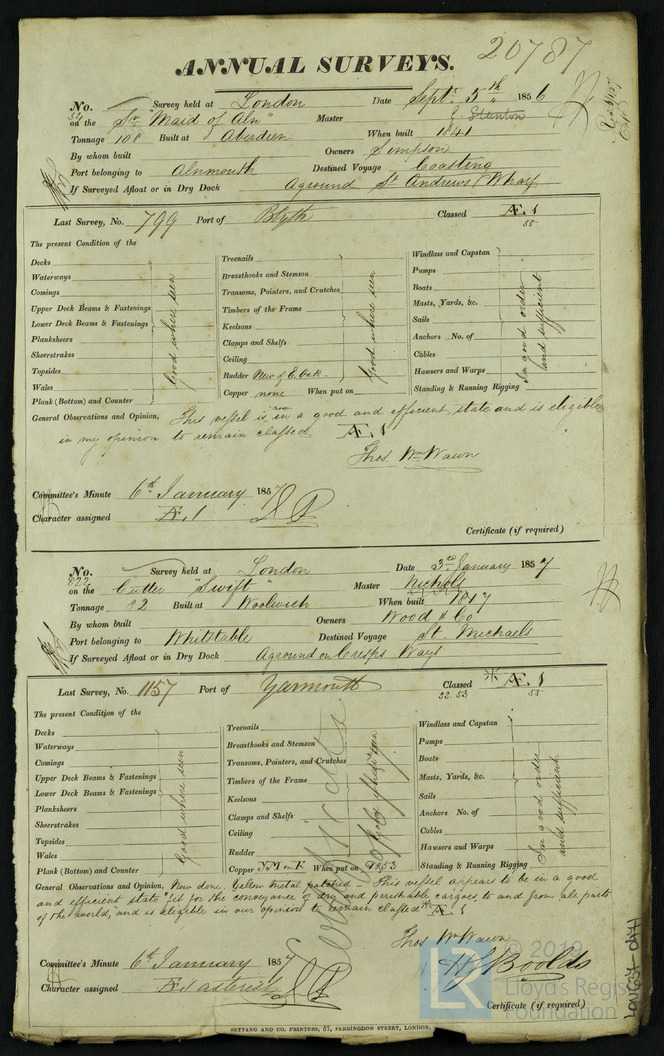 20787
ANNUAL SURVEYS.
No. Survey held at London Date Sept. 5th 1856
54 on the Sr "Maid of Aln" Master J. Stanton
Tonnage 108 Built at Aberdeen When built 1841
By whom built Owners Simpson
Port belonging to Alnmouth Destined Voyage Coasting
If Surveyed Afloat or in Dry Dock Aground St Andrews Wharf
Last Survey, No. 799 Port of Blyth Classed Æ. 1
55
The present Condition of the
Decks
Waterways
Comings
Upper Deck Beams & Fastenings
Lower Deck Beams & Fastenings
Planksheers
Sheerstrakes
Topsides
Wales
Plank (Bottom) and Counter
Good where seen
Treenails
Breasthooks and Stemson
Transoms, Pointers, and Crutches
Timbers of the Frame
Keelsons
Clamps and Shelfs
Ceiling
Rudder New of E. Oak.
Copper none When put on
Good where seen
Windlass and Capstan
Pumps
Boats
Masts, Yards, &c.
Sails
Anchors No. of
Cables
Hawsers and Warps
Standing & Running Rigging
In good order
and sufficient
General Observations and Opinion, This vessel is now in a good and efficient state and is eligible
in my opinion to remain classed Æ. 1
Thos. Wm Wawn
Committee's Minute 6th January 1857
Character assigned Æ. 1
Certificate (if required)
No. Survey held at London Date 3rd January 1857
822 on the Cutter "Swift" Master Nichols
Tonnage 82 Built at Woolwich When built 1817
By whom built Owners Wood & Co
Port belonging to Whitstable Destined Voyage St. Michaels
If Surveyed Afloat or in Dry Dock Aground on Crisps Ways
Last Survey, No. 1157 Port of Yarmouth Classed * Æ. 1
52. 53 55
The present Condition of the
Decks
Waterways
Comings
Upper Deck Beams & Fastenings
Lower Deck Beams & Fastenings
Planksheers
Sheerstrakes
Topsides
Wales
Plank (Bottom) and Counter
Good where seen
Treenails
Breasthooks and Stemson
Transoms, Pointers, and Crutches
Timbers of the Frame
Keelsons
Clamps and Shelfs
Ceiling
Rudder
Copper When put on 9.53
Windlass and Capstan
Pumps
Boats
Masts, Yards, &c.
Sails
Anchors No. of
Cables
Hawsers and Warps
Standing & Running Rigging
In good order
and sufficient
General Observations and Opinion, Now done. Yellow metal patched – This vessel appears to be in a good
and efficient state fit for the conveyance of dry and perishable cargoes to and from all parts
of the world, and is eligible in our opinion to remain classed * Æ 1
Thos Wm Wawn
Committee's Minute 6th January 1857
Character assigned Æ. 1 asterisk
Certificate (if required)
SEYFANG AND CO. PRINTERS, 57, FARRINGDON STREET, LONDON.
LON634-0471
LR
© 2019
Lloyd's Register
Foundation